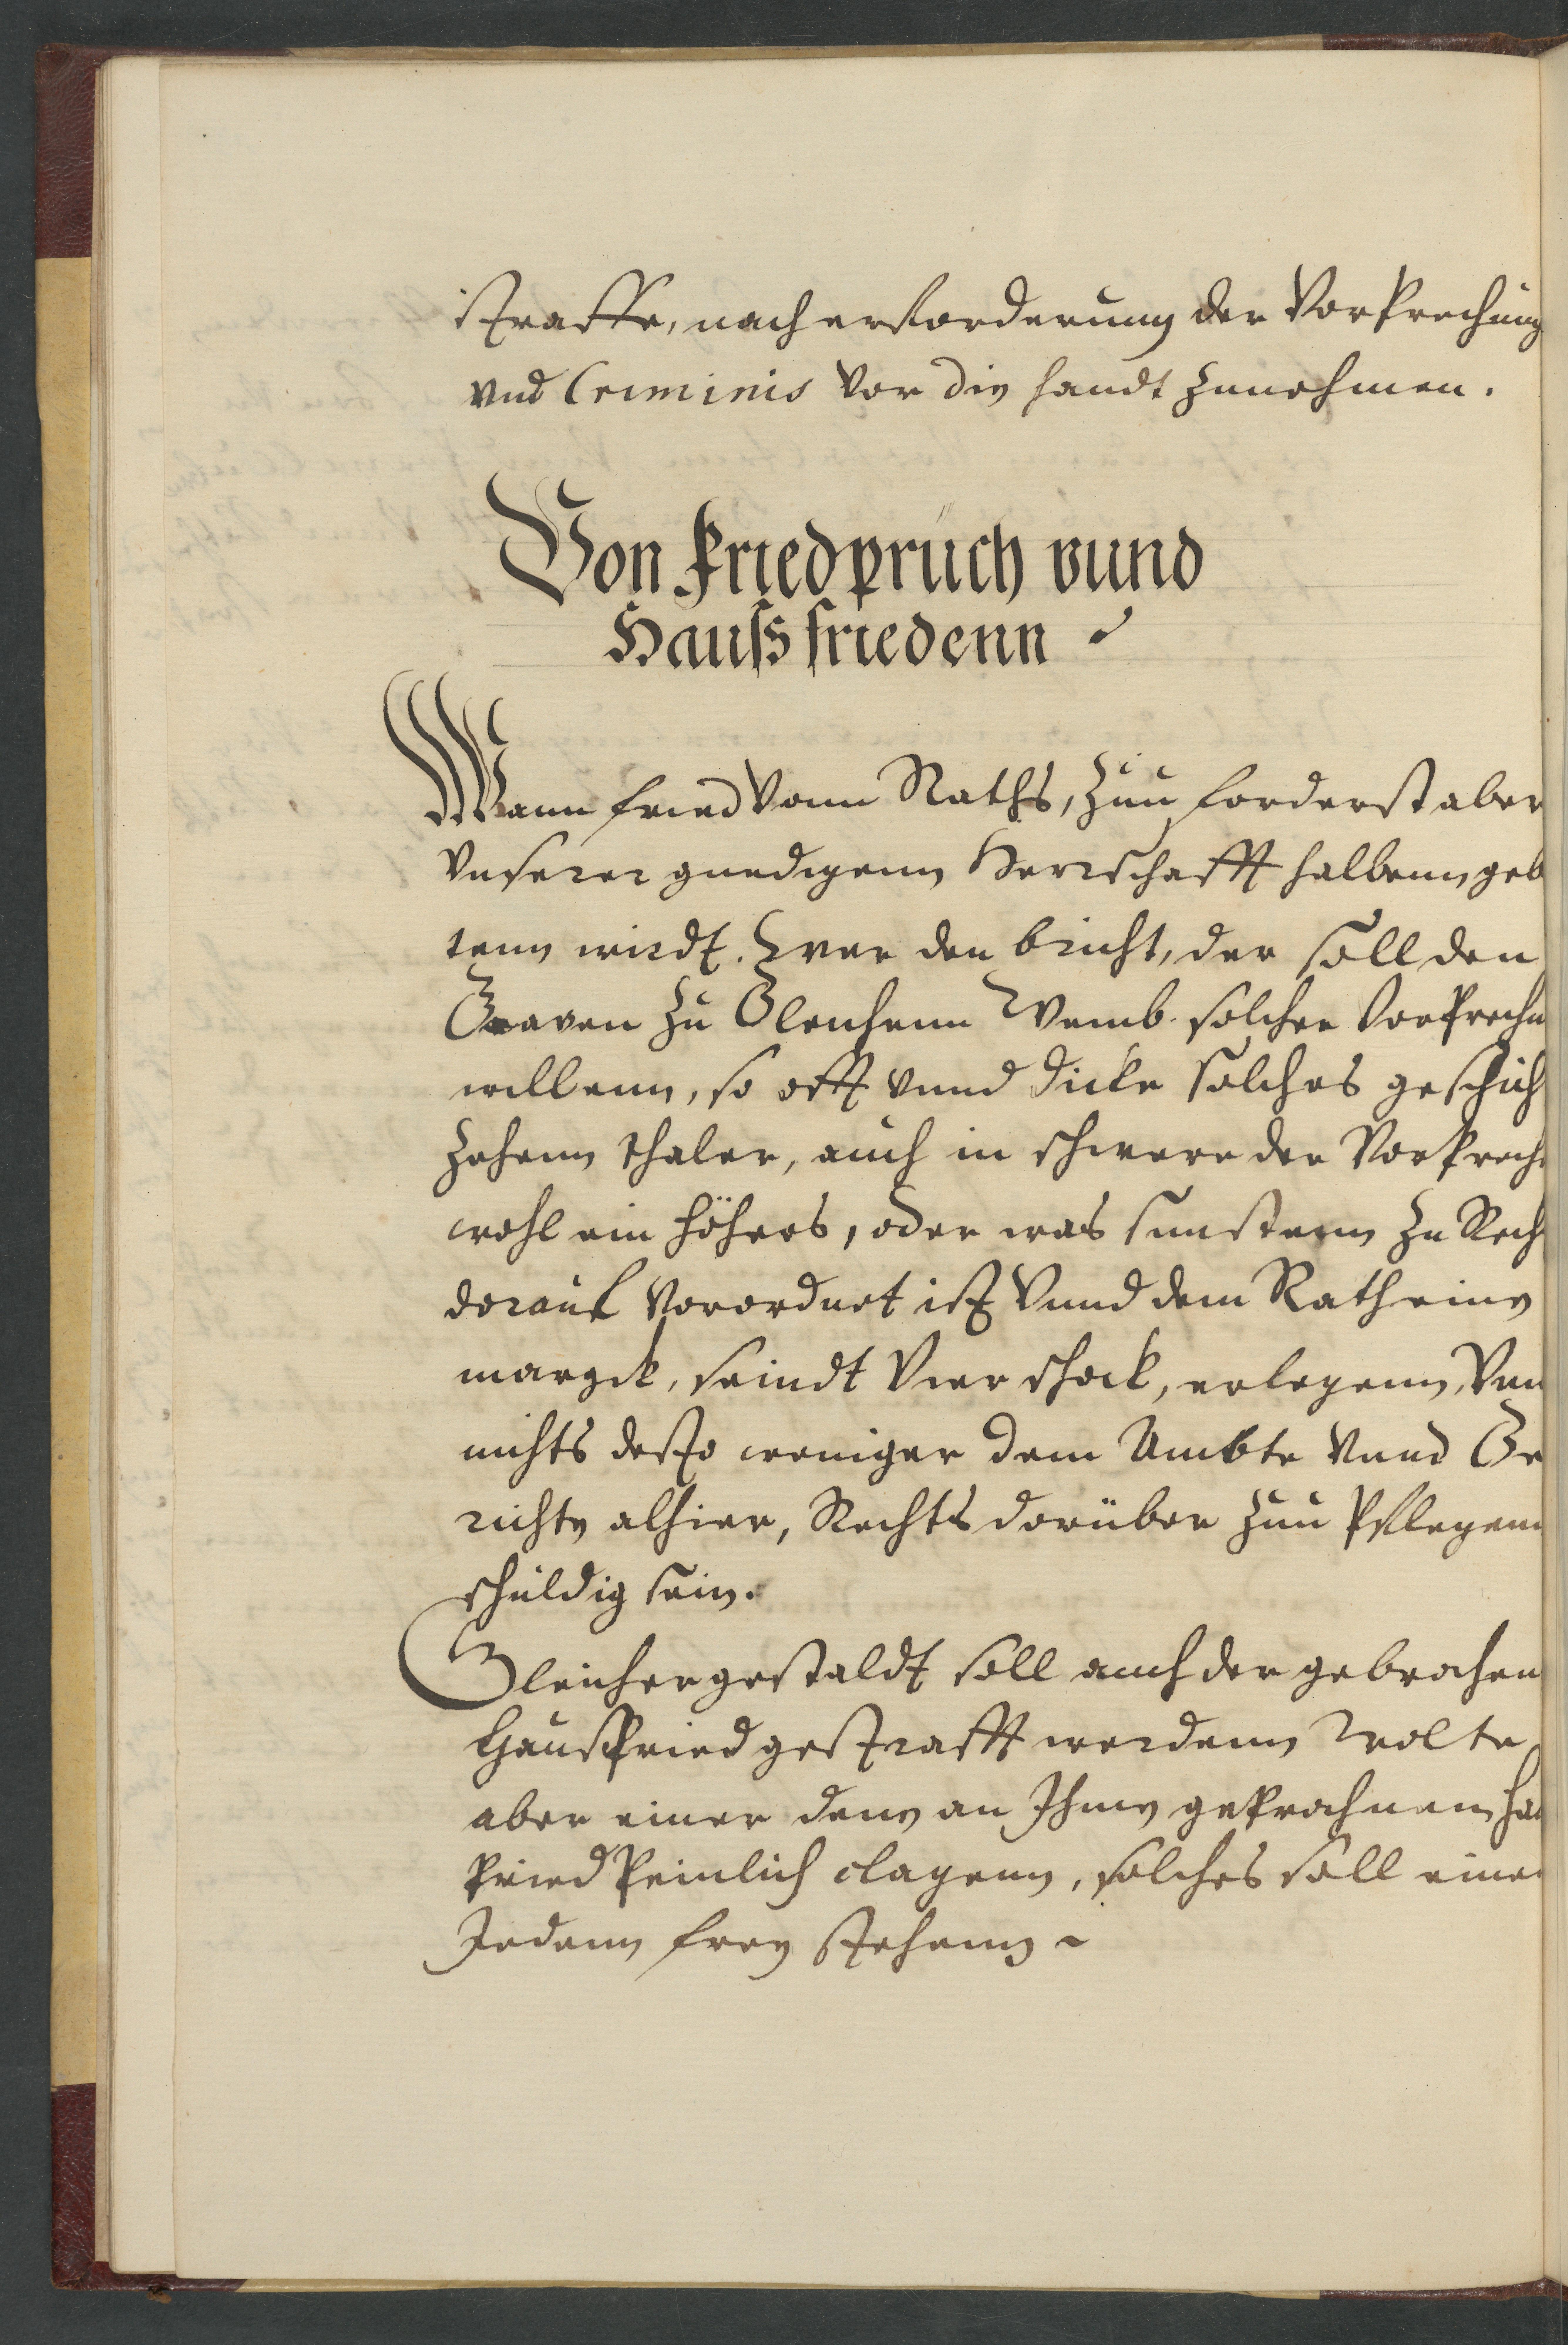 straffe, nach erforderung der Vorprechung
vnd Criminis vor die handt zunehmen.
Von friedpruch vund
Hauß friedenn
Wann fried vonn Raths, Zuu forderst aber
Vnserer gnedigenn Herrschafft halbenn geb
tenn wirdt. Wer den bricht, der soll den
Graven zu Gleichenn Vmb solcher Vorprechu
willenn, so offt vnnd dicke solches geschich
zehenn thaler, auch in schwere der Vorprech
wohl ein höhers, oder was sunstenn zu Rech
dorauf Vorordnet ist Vnnd dem Rath eine
margk, seindt Vier schock, erlegenn, Vnn
nichts desto weniger dem Ambte Vnnd Ge
richte alhier, Rechts dorüber zuu Pflegenn
schuldig sein.
Gleichergestaldt soll auch der gebrochen
Haußfried gestrafft werdenn Wolte
aber einer denn an Ihme geprochnenn hau
fried Peinlich clagenn, solches soll eine
Jedenn frey stehenn